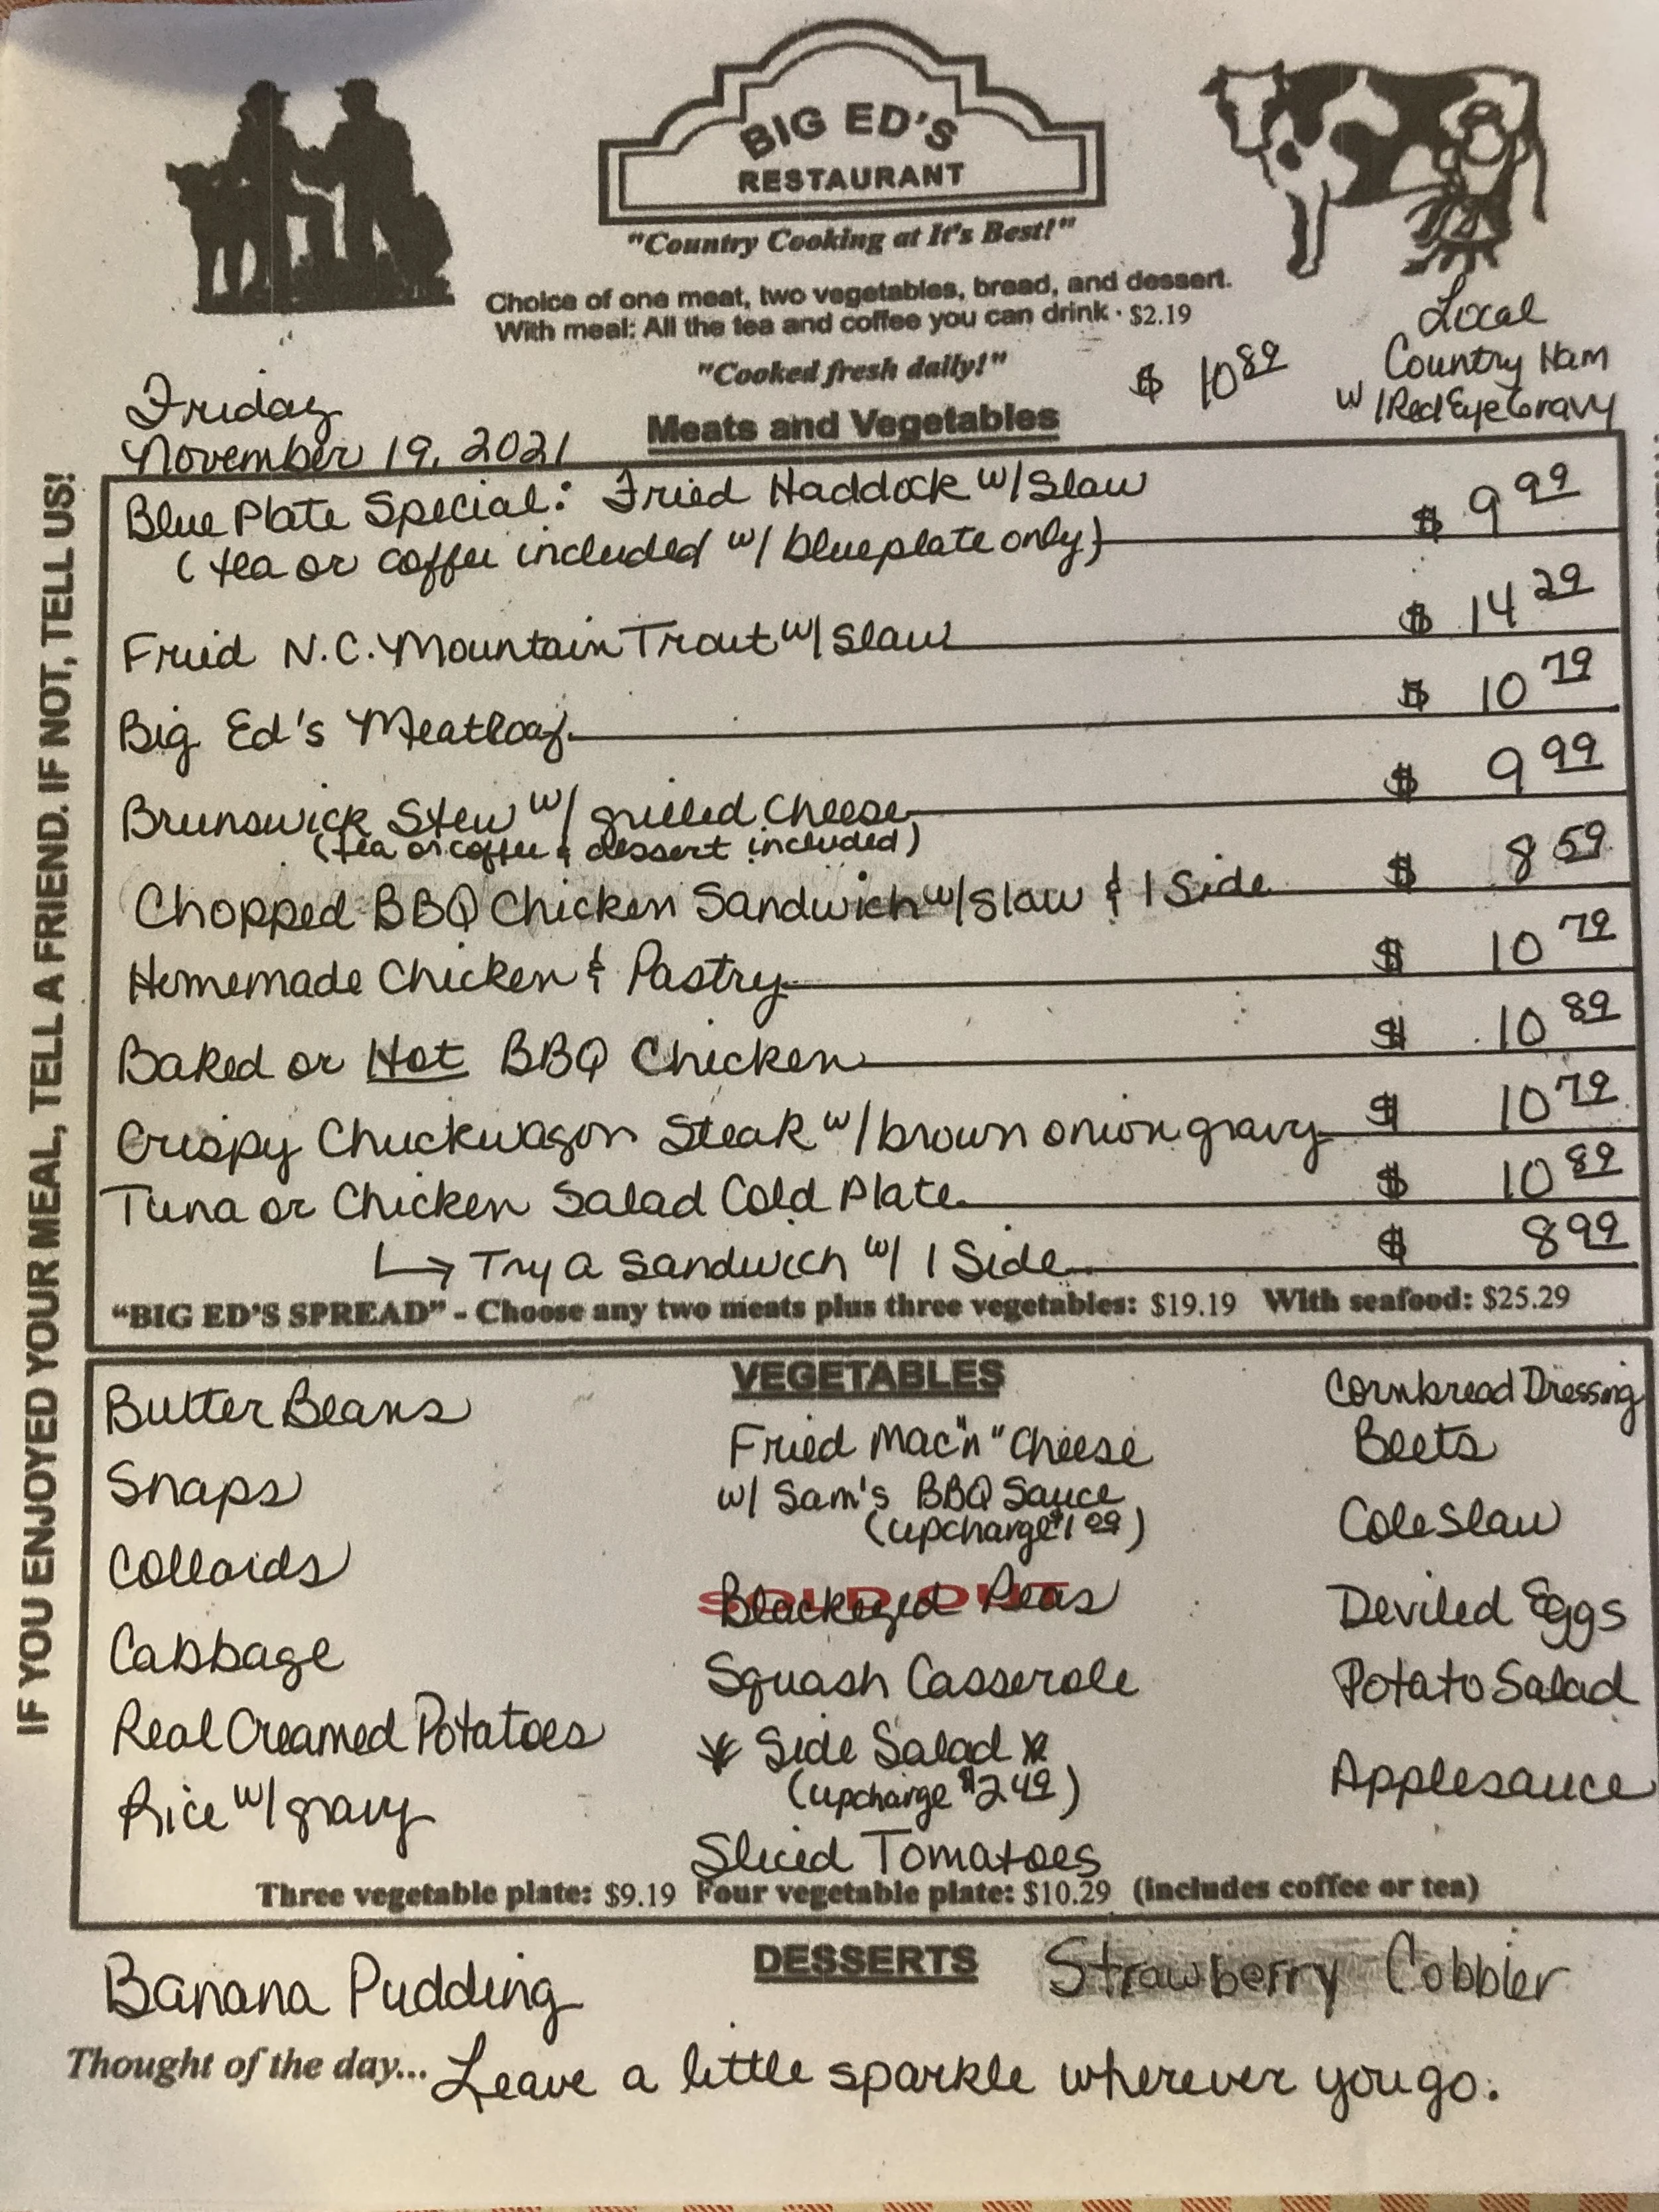 BIG ED'S
RESTAURANT
"Country Cooking at It's Best!"
Choice of one meat, two vegetables, bread, and dessert.
With meal: All the tea and coffee you can drink · $2.19
"Cooked fresh daily!"
$ 10 89
Local
Country Ham
w/Red Eye Gravy
Friday
November 19, 2021
Meats and Vegetables
Blue Plate Special: Fried Haddock w/ Slaw $ 9 99
(tea or coffee included w/ blueplate only)
Fried N.C. Mountain Trout w/ Slaw $ 14 29
Big Ed's Meatloaf $ 10 79
Brunswick Stew w/ grilled cheese $ 9 99
(tea or coffee & dessert included)
Chopped BBQ Chicken Sandwich w/ Slaw & 1 Side $ 8 59
Homemade Chicken & Pastry $ 10 79
Baked or Hot BBQ Chicken $ 10 89
Crispy Chuckwagon Steak w/ brown onion gravy $ 10 79
Tuna or Chicken Salad Cold Plate $ 10 89
↳ Try A Sandwich w/ 1 Side $ 8 99
"BIG ED'S SPREAD" - Choose any two meats plus three vegetables: $19.19 With seafood: $25.29
VEGETABLES
Butter Beans
Snaps
Collards
Cabbage
Real Creamed Potatoes
Rice w/ gravy
Fried Mac "n" Cheese
w/ Sam's BBQ Sauce
(upcharge $1 09)
Blackeyed Peas
SOLD OUT
Squash Casserole
* Side Salad *
(upcharge $2 49)
Sliced Tomatoes
Cornbread Dressing
Beets
Cole Slaw
Deviled Eggs
Potato Salad
Applesauce
Three vegetable plate: $9.19 Four vegetable plate: $10.29 (includes coffee or tea)
DESSERTS
Banana Pudding
Strawberry Cobbler
Thought of the day... Leave a little sparkle wherever you go.
IF YOU ENJOYED YOUR MEAL, TELL A FRIEND. IF NOT, TELL US!